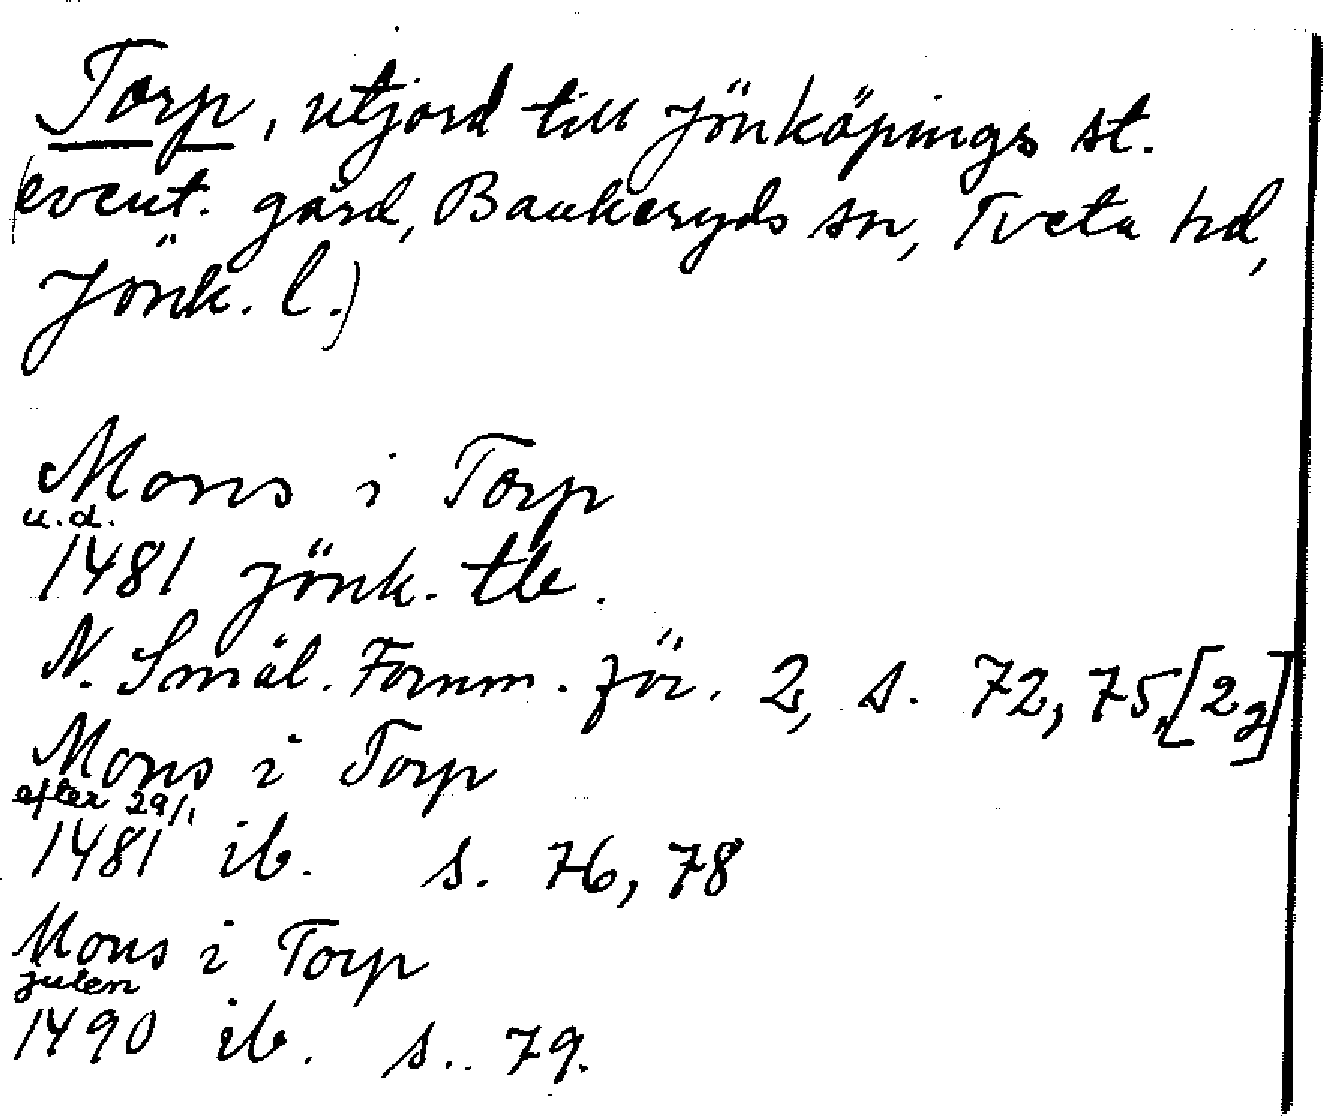 Torp, utjord till Jönköpings st.
(event. gård, Bankeryds sn, Tveta hd,
Jönk. l.)
Mons i Torp
u.d.
1481 Jönk. tb.
N. Smål. Fornm. för. 2, s. 72, 75, [2 g]
Mons i Torp
efter 29/1
1481 ib. s. 76, 78
Mons i Torp
julen
1490 ib. s. 79.